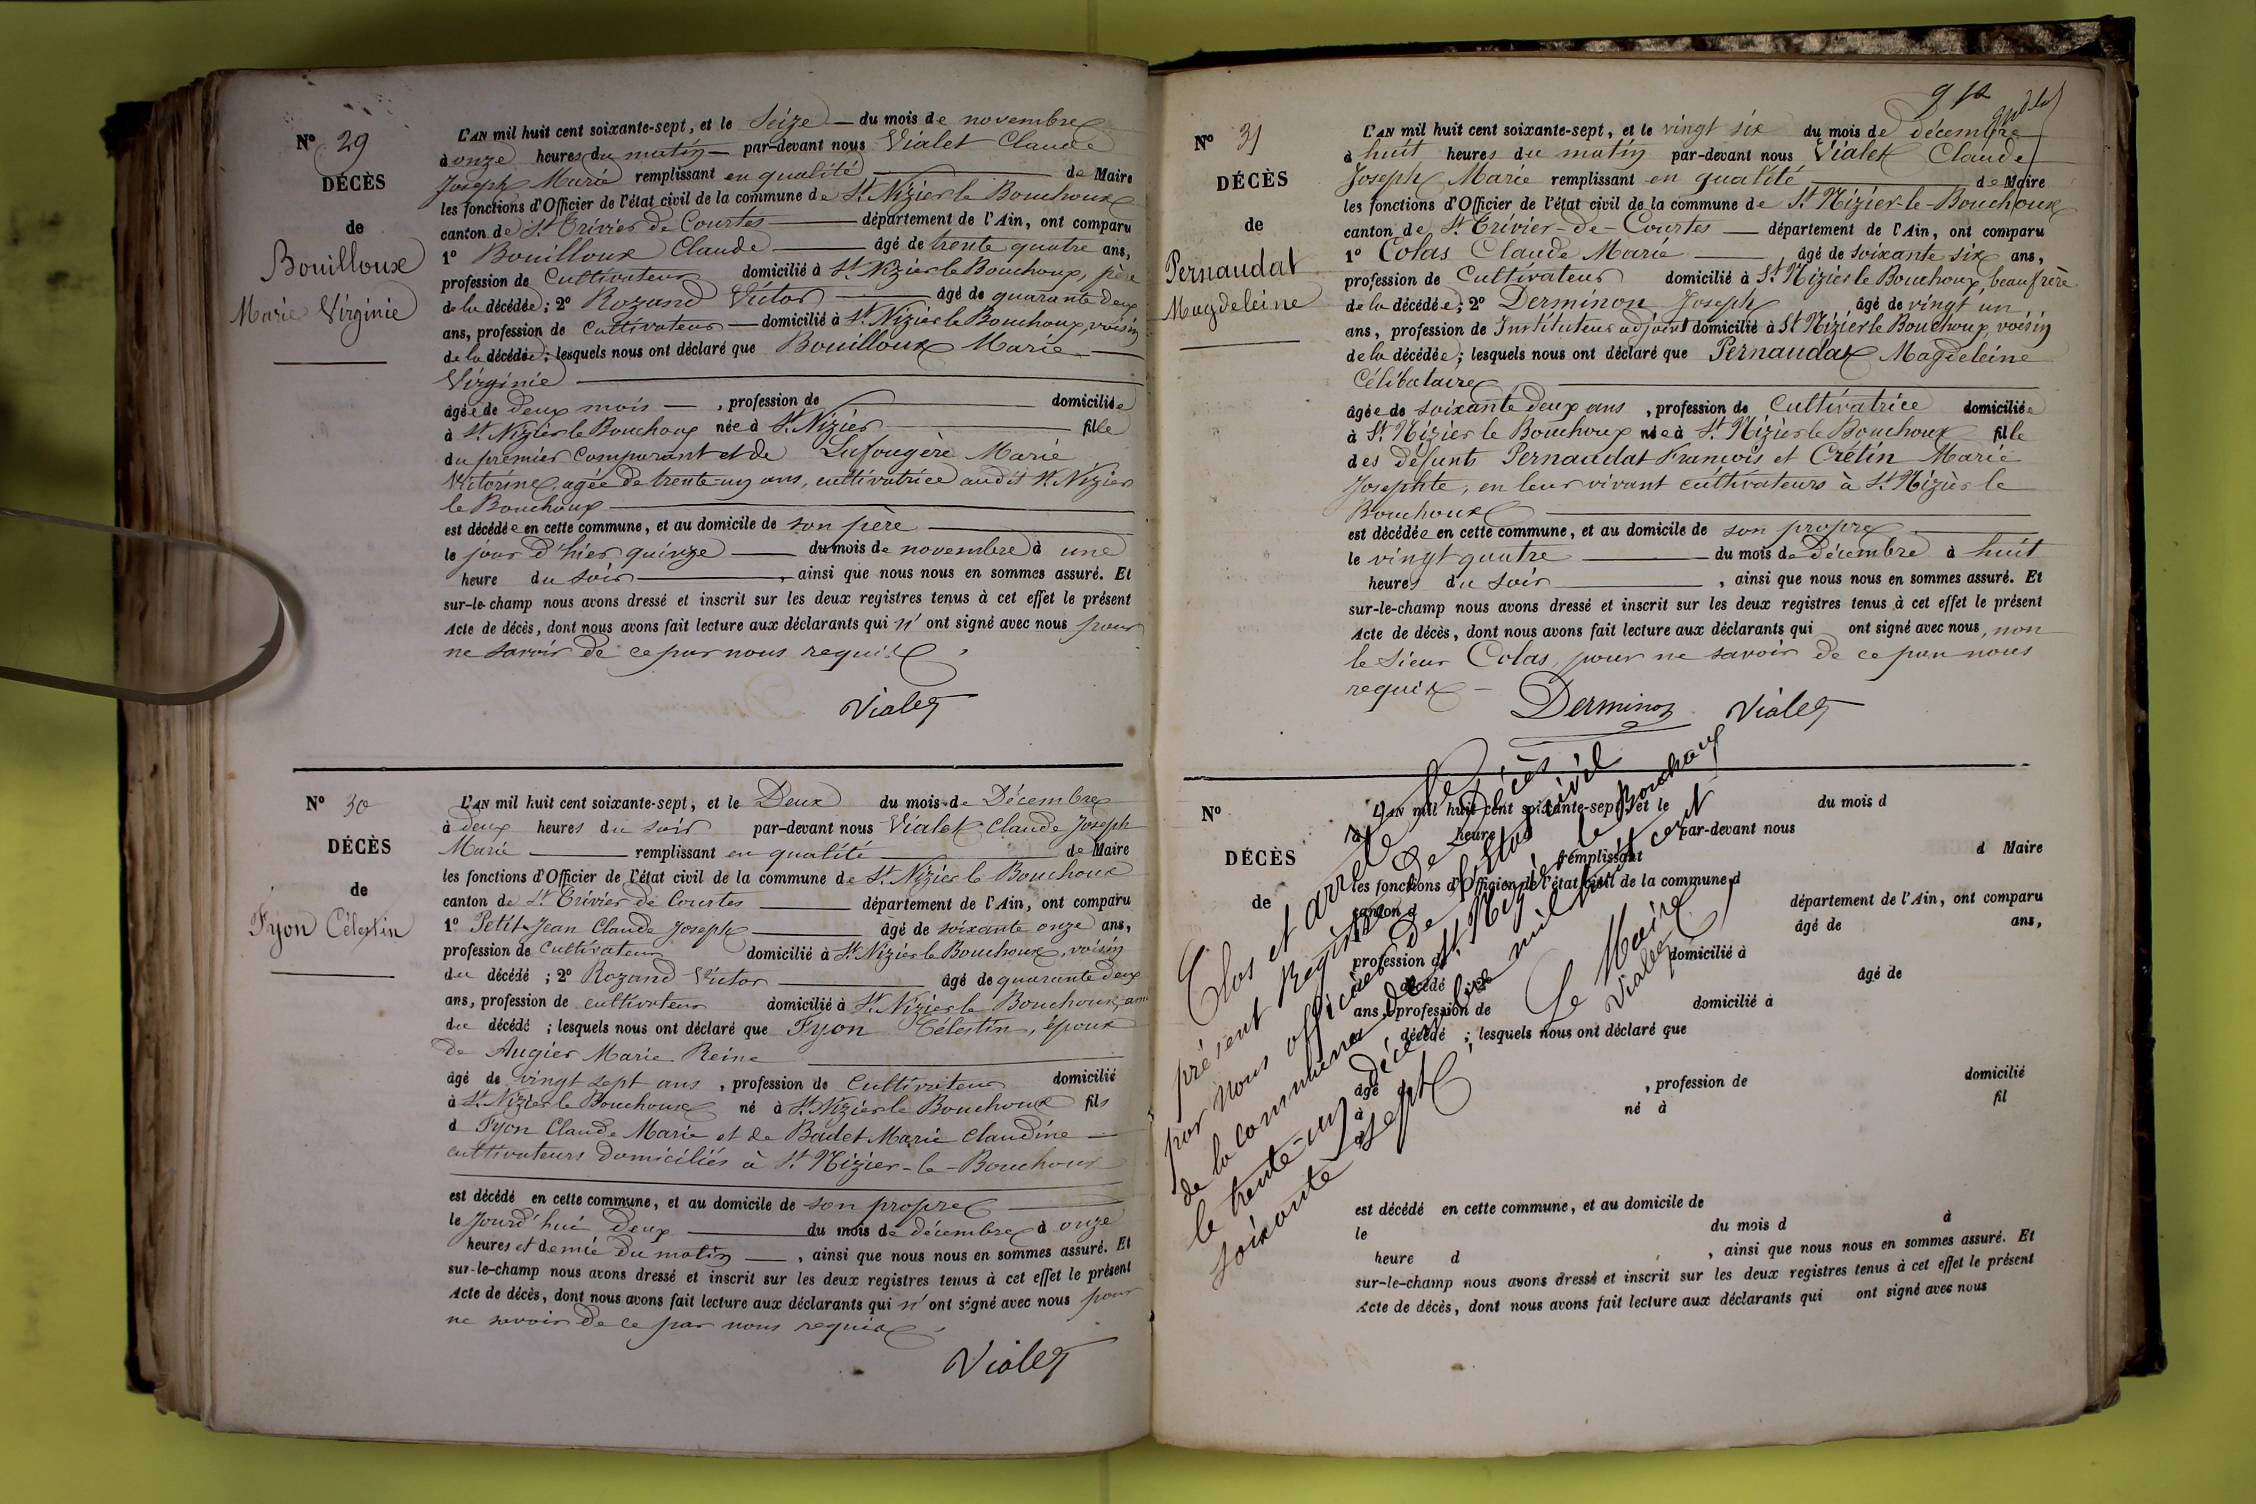 N° 29
DÉCÈS
de
Bouilloux
Marie Virginie
L'AN mil huit cent soixante-sept, et le Seize — du mois de novembre
à onze heures du matin — par-devant nous Vialet Claude
Joseph Marie remplissant en qualité de Maire
les fonctions d'Officier de l'état civil de la commune de St Nizier le Bouchoux
canton de St Trivier de Courtes — département de l'Ain, ont comparu
1° Bouilloux Claude — âgé de trente quatre ans,
profession de Cultivateur domicilié à St Nizier le Bouchoux, père
de la décédée; 2° Rozand Victor — âgé de quarante deux
ans, profession de Cultivateur — domicilié à St Nizier le Bouchoux, voisin
de la décédée; lesquels nous ont déclaré que Bouilloux Marie —
Virginie —
âgée de deux mois — , profession de — domiciliée
à St Nizier le Bouchoux née à St Nizier — fille
du premier comparant et de Lafougère Marie
Victorine, agée de trente-un ans, cultivatrice audit St Nizier
le Bouchoux —
est décédée en cette commune, et au domicile de son père —
le jour d'hier quinze — du mois de novembre à une
heure du soir — , ainsi que nous nous en sommes assuré. Et
sur-le-champ nous avons dressé et inscrit sur les deux registres tenus à cet effet le présent
Acte de décès, dont nous avons fait lecture aux déclarants qui n'ont signé avec nous pour
ne savoir de ce par nous requis.
Vialet
N° 30
DÉCÈS
de
Fyon Célestin
L'AN mil huit cent soixante-sept, et le Deux du mois de Décembre
à deux heures du soir par-devant nous Vialet Claude Joseph
Marie — remplissant en qualité — de Maire
les fonctions d'Officier de l'état civil de la commune de St Nizier le Bouchoux
canton de St Trivier de Courtes — département de l'Ain, ont comparu
1° Petit-Jean Claude Joseph — âgé de soixante onze ans,
profession de Cultivateur domicilié à St Nizier le Bouchoux, voisin
du décédé ; 2° Rozand Victor — âgé de quarante deux
ans, profession de cultivateur domicilié à St Nizier le Bouchoux, ami
du décédé ; lesquels nous ont déclaré que Fyon Célestin, époux
de Augier Marie Reine —
âgé de vingt sept ans , profession de Cultivateur domicilié
à St Nizier le Bouchoux né à St Nizier le Bouchoux fils
d Fyon Claude Marie et de Badet Marie Claudine —
cultivateurs domiciliés à St Nizier-le-Bouchoux
est décédé en cette commune, et au domicile de son propre —
le Jourd'hui Deux — du mois de décembre à onze
heures et demie du matin — , ainsi que nous nous en sommes assuré. Et
sur-le-champ nous avons dressé et inscrit sur les deux registres tenus à cet effet le présent
Acte de décès, dont nous avons fait lecture aux déclarants qui n'ont signé avec nous pour
ne savoir de ce par nous requis.
Vialet
N° 31
DÉCÈS
de
Pernaudat
Magdeleine
L'AN mil huit cent soixante-sept, et le vingt six du mois de décembre
à huit heures du matin par-devant nous Vialet Claude
Joseph Marie remplissant en qualité — de Maire
les fonctions d'Officier de l'état civil de la commune de St Nizier-le-Bouchoux
canton de St Trivier-de-Courtes — département de l'Ain, ont comparu
1° Colas Claude Marie — âgé de soixante six ans,
profession de Cultivateur domicilié à St Nizier le Bouchoux, beau frère
de la décédée; 2° Derminon Joseph âgé de vingt un
ans, profession de Instituteur adjoint domicilié à St Nizier le Bouchoux voisin
de la décédée; lesquels nous ont déclaré que Pernaudat Magdeleine
Célibataire —
âgée de soixante deux ans , profession de Cultivatrice domiciliée
à St Nizier le Bouchoux née à St Nizier le Bouchoux fille
des défunts Pernaudat François et Crétin Marie
Josephte, en leur vivant cultivateurs à St Nizier le
Bouchoux —
est décédée en cette commune, et au domicile de son propre —
le vingt quatre — du mois de Décembre à huit
heures du soir — , ainsi que nous nous en sommes assuré. Et
sur-le-champ nous avons dressé et inscrit sur les deux registres tenus à cet effet le présent
Acte de décès, dont nous avons fait lecture aux déclarants qui ont signé avec nous, non
le sieur Colas, pour ne savoir de ce par nous
requis —
Derminon Vialet
N°
DÉCÈS
de
L'AN mil huit cent soixante-sept, et le du mois d
à heure par-devant nous
remplissant d Maire
les fonctions d'Officier de l'état civil de la commune d
canton d département de l'Ain, ont comparu
âgé de ans,
profession d domicilié à
décédé ; 2° âgé de
ans, profession de domicilié à
décédé ; lesquels nous ont déclaré que
âgé d , profession de domicilié
à né à fil
d
est décédé en cette commune, et au domicile de
le du mois d à
heure d , ainsi que nous nous en sommes assuré. Et
sur-le-champ nous avons dressé et inscrit sur les deux registres tenus à cet effet le présent
Acte de décès, dont nous avons fait lecture aux déclarants qui ont signé avec nous
Clos et arrêté le
présent Registre de Décès
par nous officier de l'état civil
de la commune de St Nizier le Bouchoux
le trente-un décembre mil huit cent
soixante sept.
Le Maire
Vialet